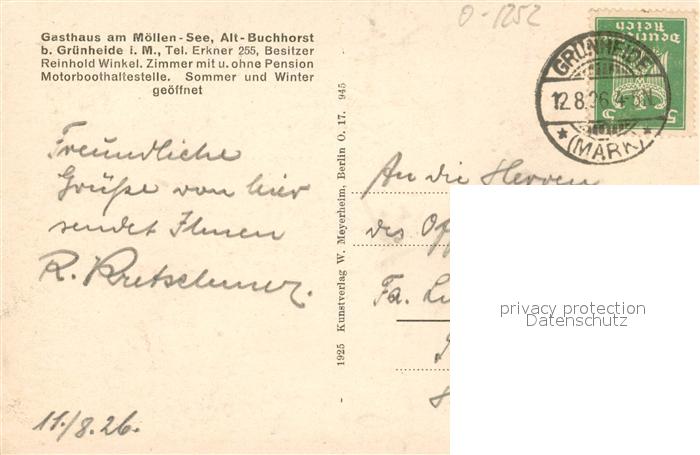 Gasthaus am Möllen-See, Alt-Buchhorst
b. Grünheide i. M., Tel. Erkner 255, Besitzer
Reinhold Winkel. Zimmer mit u. ohne Pension
Motorboothaltestelle. Sommer und Winter
geöffnet
0-1252
Deutsches
Reich
5 5
GRÜNHEIDE
12.8.26.4-5N
* (MARK) *
Freundliche
Grüße von hier
sendet Ihnen
R. Kretschmer.
11./8.26.
1925 Kunstverlag W. Meyerheim, Berlin O. 17. 945
An die Herren
des
Fa.
privacy protection
Datenschutz